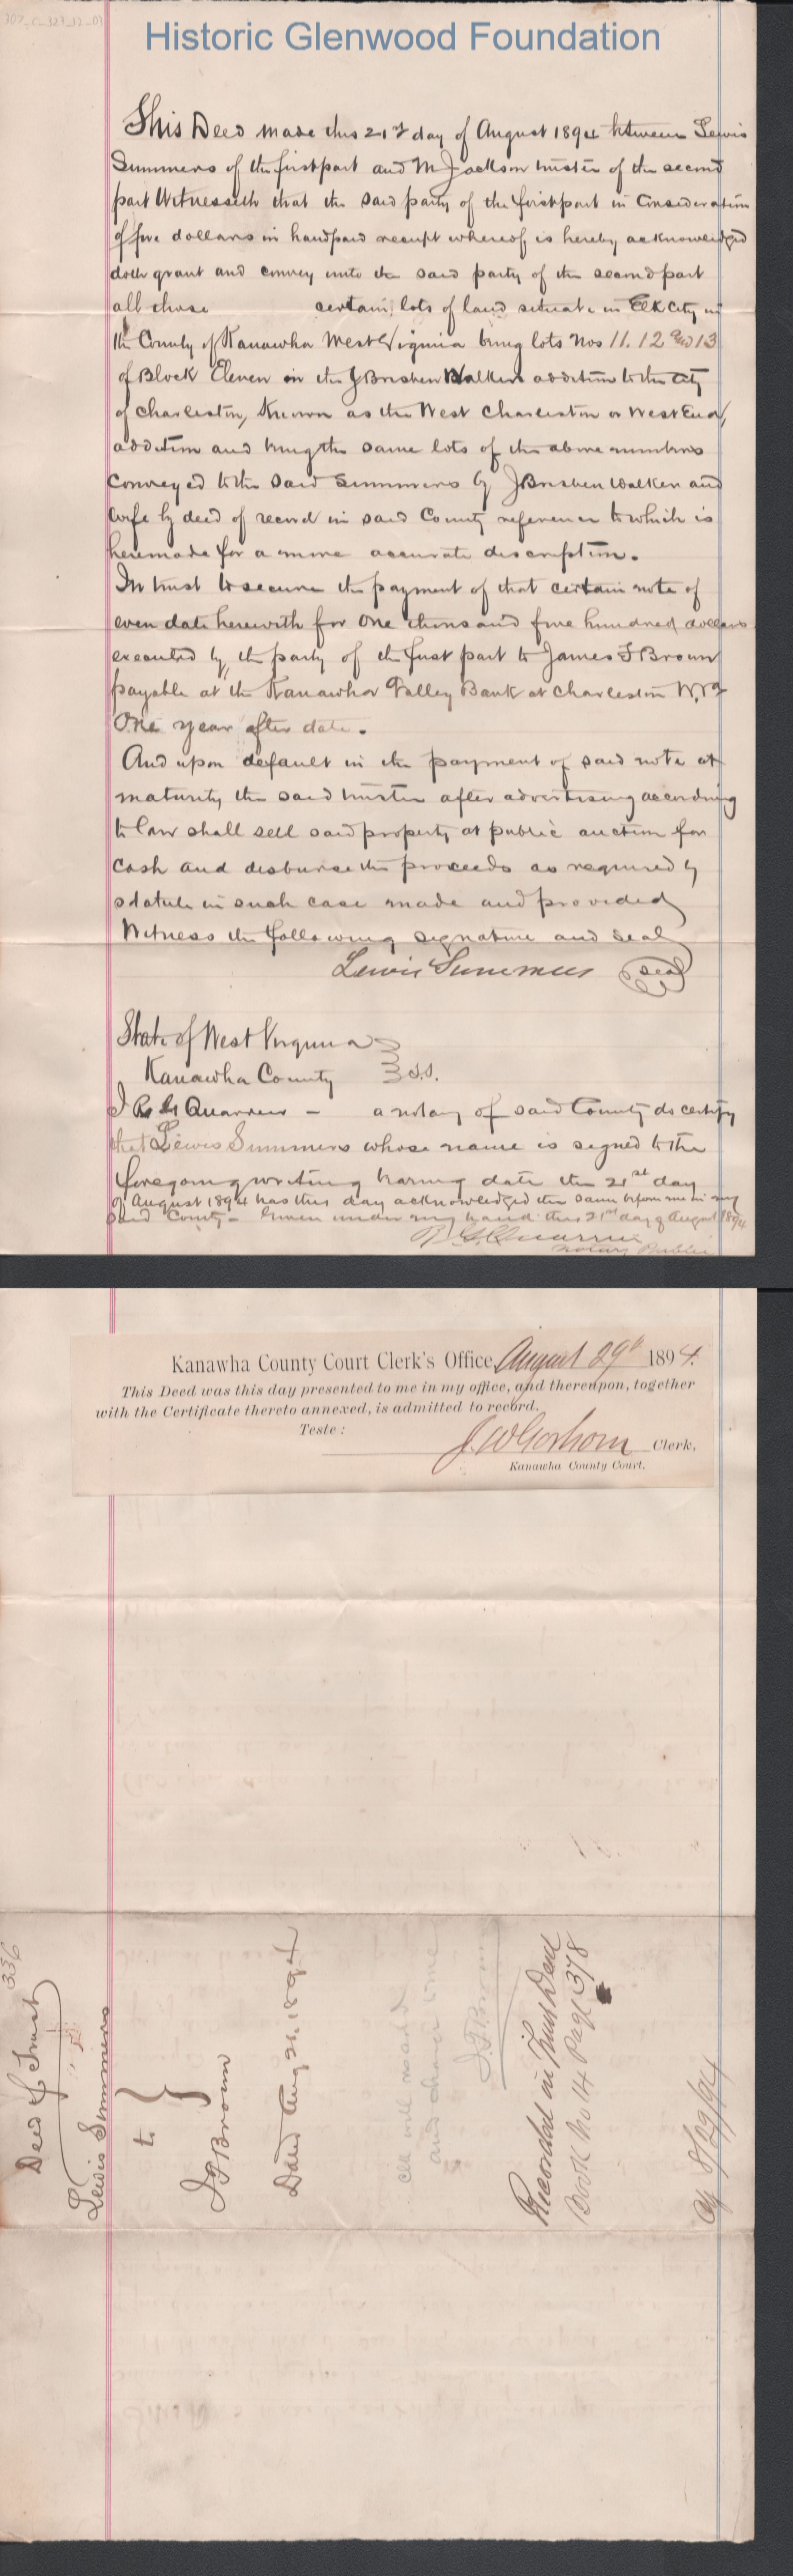 Historic Glenwood Foundation
This Deed made this 21st day of August 1894 between Lewis
Summers of the first part and M Jackson trustee of the second
part Witnesseth that the said party of the first part in Consideration
of five dollars in hand paid receipt whereof is hereby acknowledged
doth grant and convey unto the said party of the second part
all those certain lots of land situate in Elk City in
the County of Kanawha West Virginia being lots Nos 11. 12 and 13
of Block Eleven in the J Brisben Walkers addition to the City
of Charleston, Known as the West Charleston or West End,
addition and being the same lots of the above numbers
Conveyed to the said Summers by J Brisben Walker and
Wife by deed of record in said County reference to which is
here made for a more accurate discription.
In trust to secure the payment of that certain note of
even date herewith for One thousand five hundred dollars
executed by the party of the first part to James F Brown
payable at the Kanawha Valley Bank at Charleston W.Va
One year after date.
And upon default in the payment of said note at
maturity the said trustee after advertising according
to law shall sell said property at public auction for
Cash and disburse the proceeds as required by
statute in such case made and provided
Witness the following signature and seal
Lewis Summers (seal)
State of West Virginia
Kanawha County S.S.
I R G Quarrier - a notary of said County do certify
that Lewis Summers whose name is signed to the
foregoing writing bearing date the 21st day
of August 1894 has this day acknowledged the same before me in my
said County - Given under my hand this 21st day of August 1894
R G Quarrier
Notary Public
Kanawha County Court Clerk's Office, August 29th 1894.
This Deed was this day presented to me in my office, and thereupon, together
with the Certificate thereto annexed, is admitted to record.
Teste:
J. W Gorhom Clerk,
Kanawha County Court.
336
Deed of Trust
Lewis Summers
to }
J F Brown
Dated Aug 21. 1894
J F Brown
Recorded in Trust Deed
Book No 14 Page 378
8/29/94